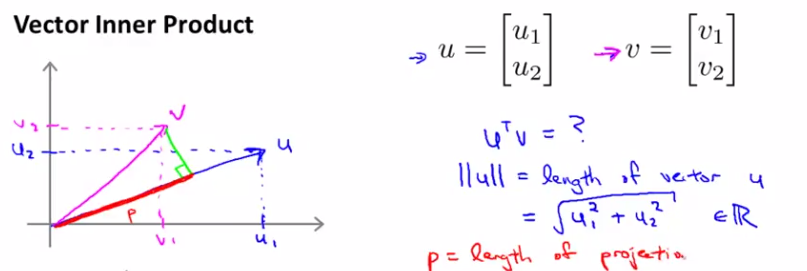 Vector Inner Product
→ u = [u₁ u₂] → v = [v₁ v₂]
v
v₂
u₂
u
p
v₁
u₁
uᵀv = ?
||u|| = length of vector u
= √u₁² + u₂² ∈ ℝ
p = length of projectio